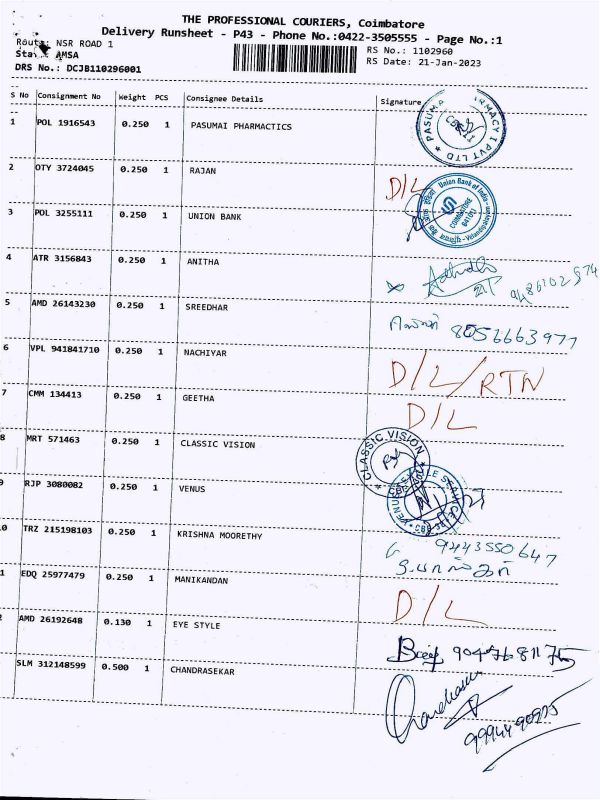 THE PROFESSIONAL COURIERS, Coimbatore
Delivery Runsheet - P43 - Phone No.:0422-3505555 - Page No.:1
Route: NSR ROAD 1
RS No.: 1102960
AMSA
RS Date: 21-Jan-2023
DRS No.: DCJB110296001
S No Consignment No Weight PCS Consignee Details Signature
1 POL 1916543 0.250 1 PASUMAI PHARMACTICS
2 OTY 3724045 0.250 1 RAJAN D/L
3 POL 3255111 0.250 1 UNION BANK
Union Bank of India
COIMBATORE
4 ATR 3156843 0.250 1 ANITHA
5 AMD 26143230 0.250 1 SREEDHAR 8056663977
6 VPL 941841710 0.250 1 NACHIYAR D/L/RTN
7 CMM 134413 0.250 1 GEETHA D/L
8 MRT 571463 0.250 1 CLASSIC VISION
CLASSIC VISION
9 RJP 3080082 0.250 1 VENUS
0 TRZ 215198103 0.250 1 KRISHNA MOORETHY 9443550647
1 EDQ 25977479 0.250 1 MANIKANDAN D/L
2 AMD 26192648 0.130 1 EYE STYLE
SLM 312148599 0.500 1 CHANDRASEKAR